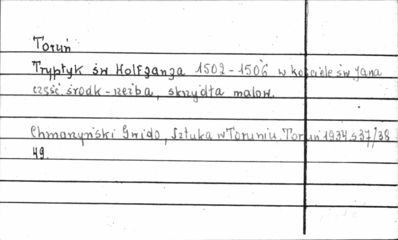 Toruń
Tryptyk św Wolfganga 1502-1506 w kościele św Jana
część środk-rzeźba, skrzydła malow.
Chmarzyński Gwido, Sztuka w Toruniu. Toruń 1934 s 37/38
49.